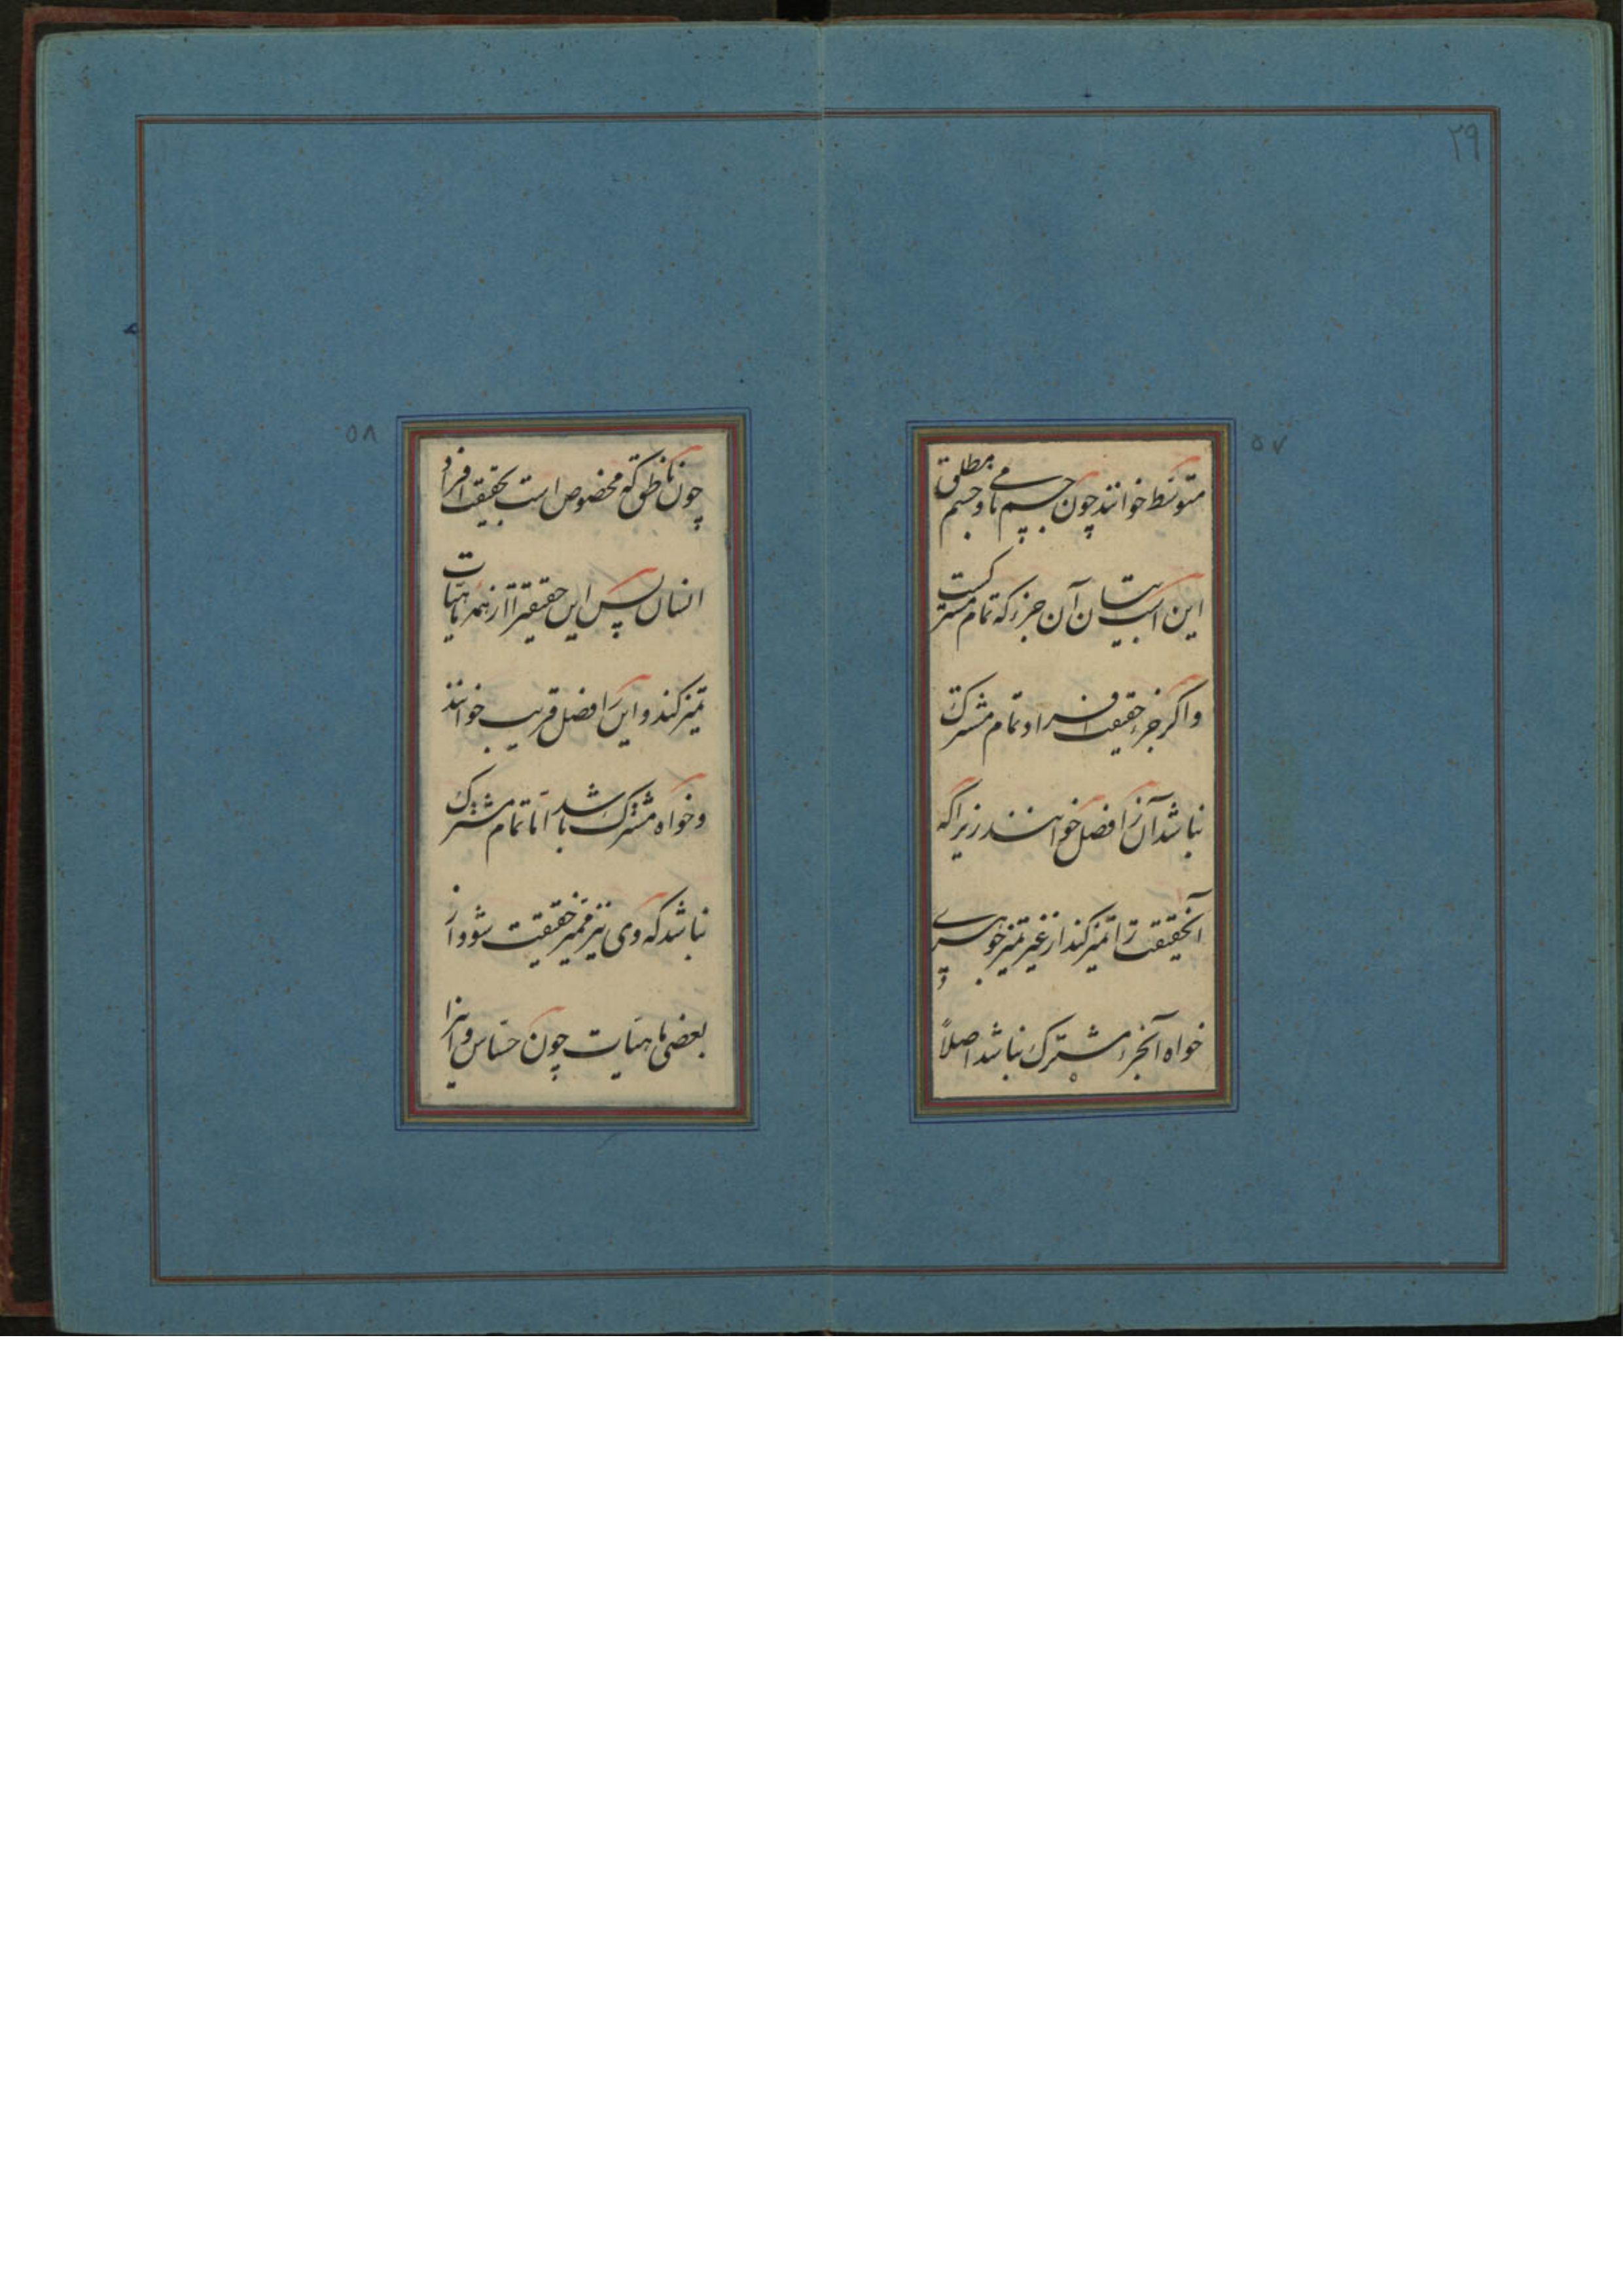 ۲۹
۵۷
متوسط خوانند چون جسم نامی و جسم مطلق
این است بیان آن جزء که تمام مشترکست
واگر جزء حقیقت افراد تمام مشترک
نباشد آن را فصل خوانند زیرا که
آنحقیقت را تمیز کند از غیر تمیز جوهری
خواه آنجزء مشترک نباشد اصلاً
۵۸
چون ناطق که مخصوص است بحقیقت افراد
انسان پس این حقیقترا از همه ماهیات
تمیز کند و این را فصل قریب خوانند
و خواه مشترک باشد اما تمام مشترک
نباشد که وی نیز ممیز حقیقت شود از
بعضی ماهیات چون حساس و اینرا